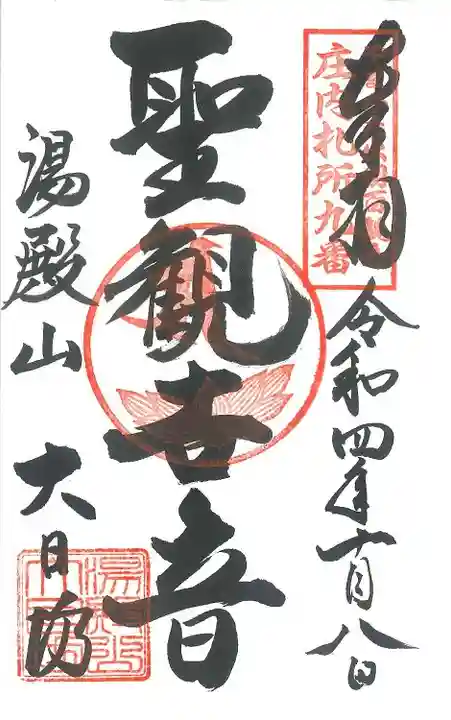 奉拝
庄内札所九番
令和四年十月八日
聖観世音
湯殿山 大日坊